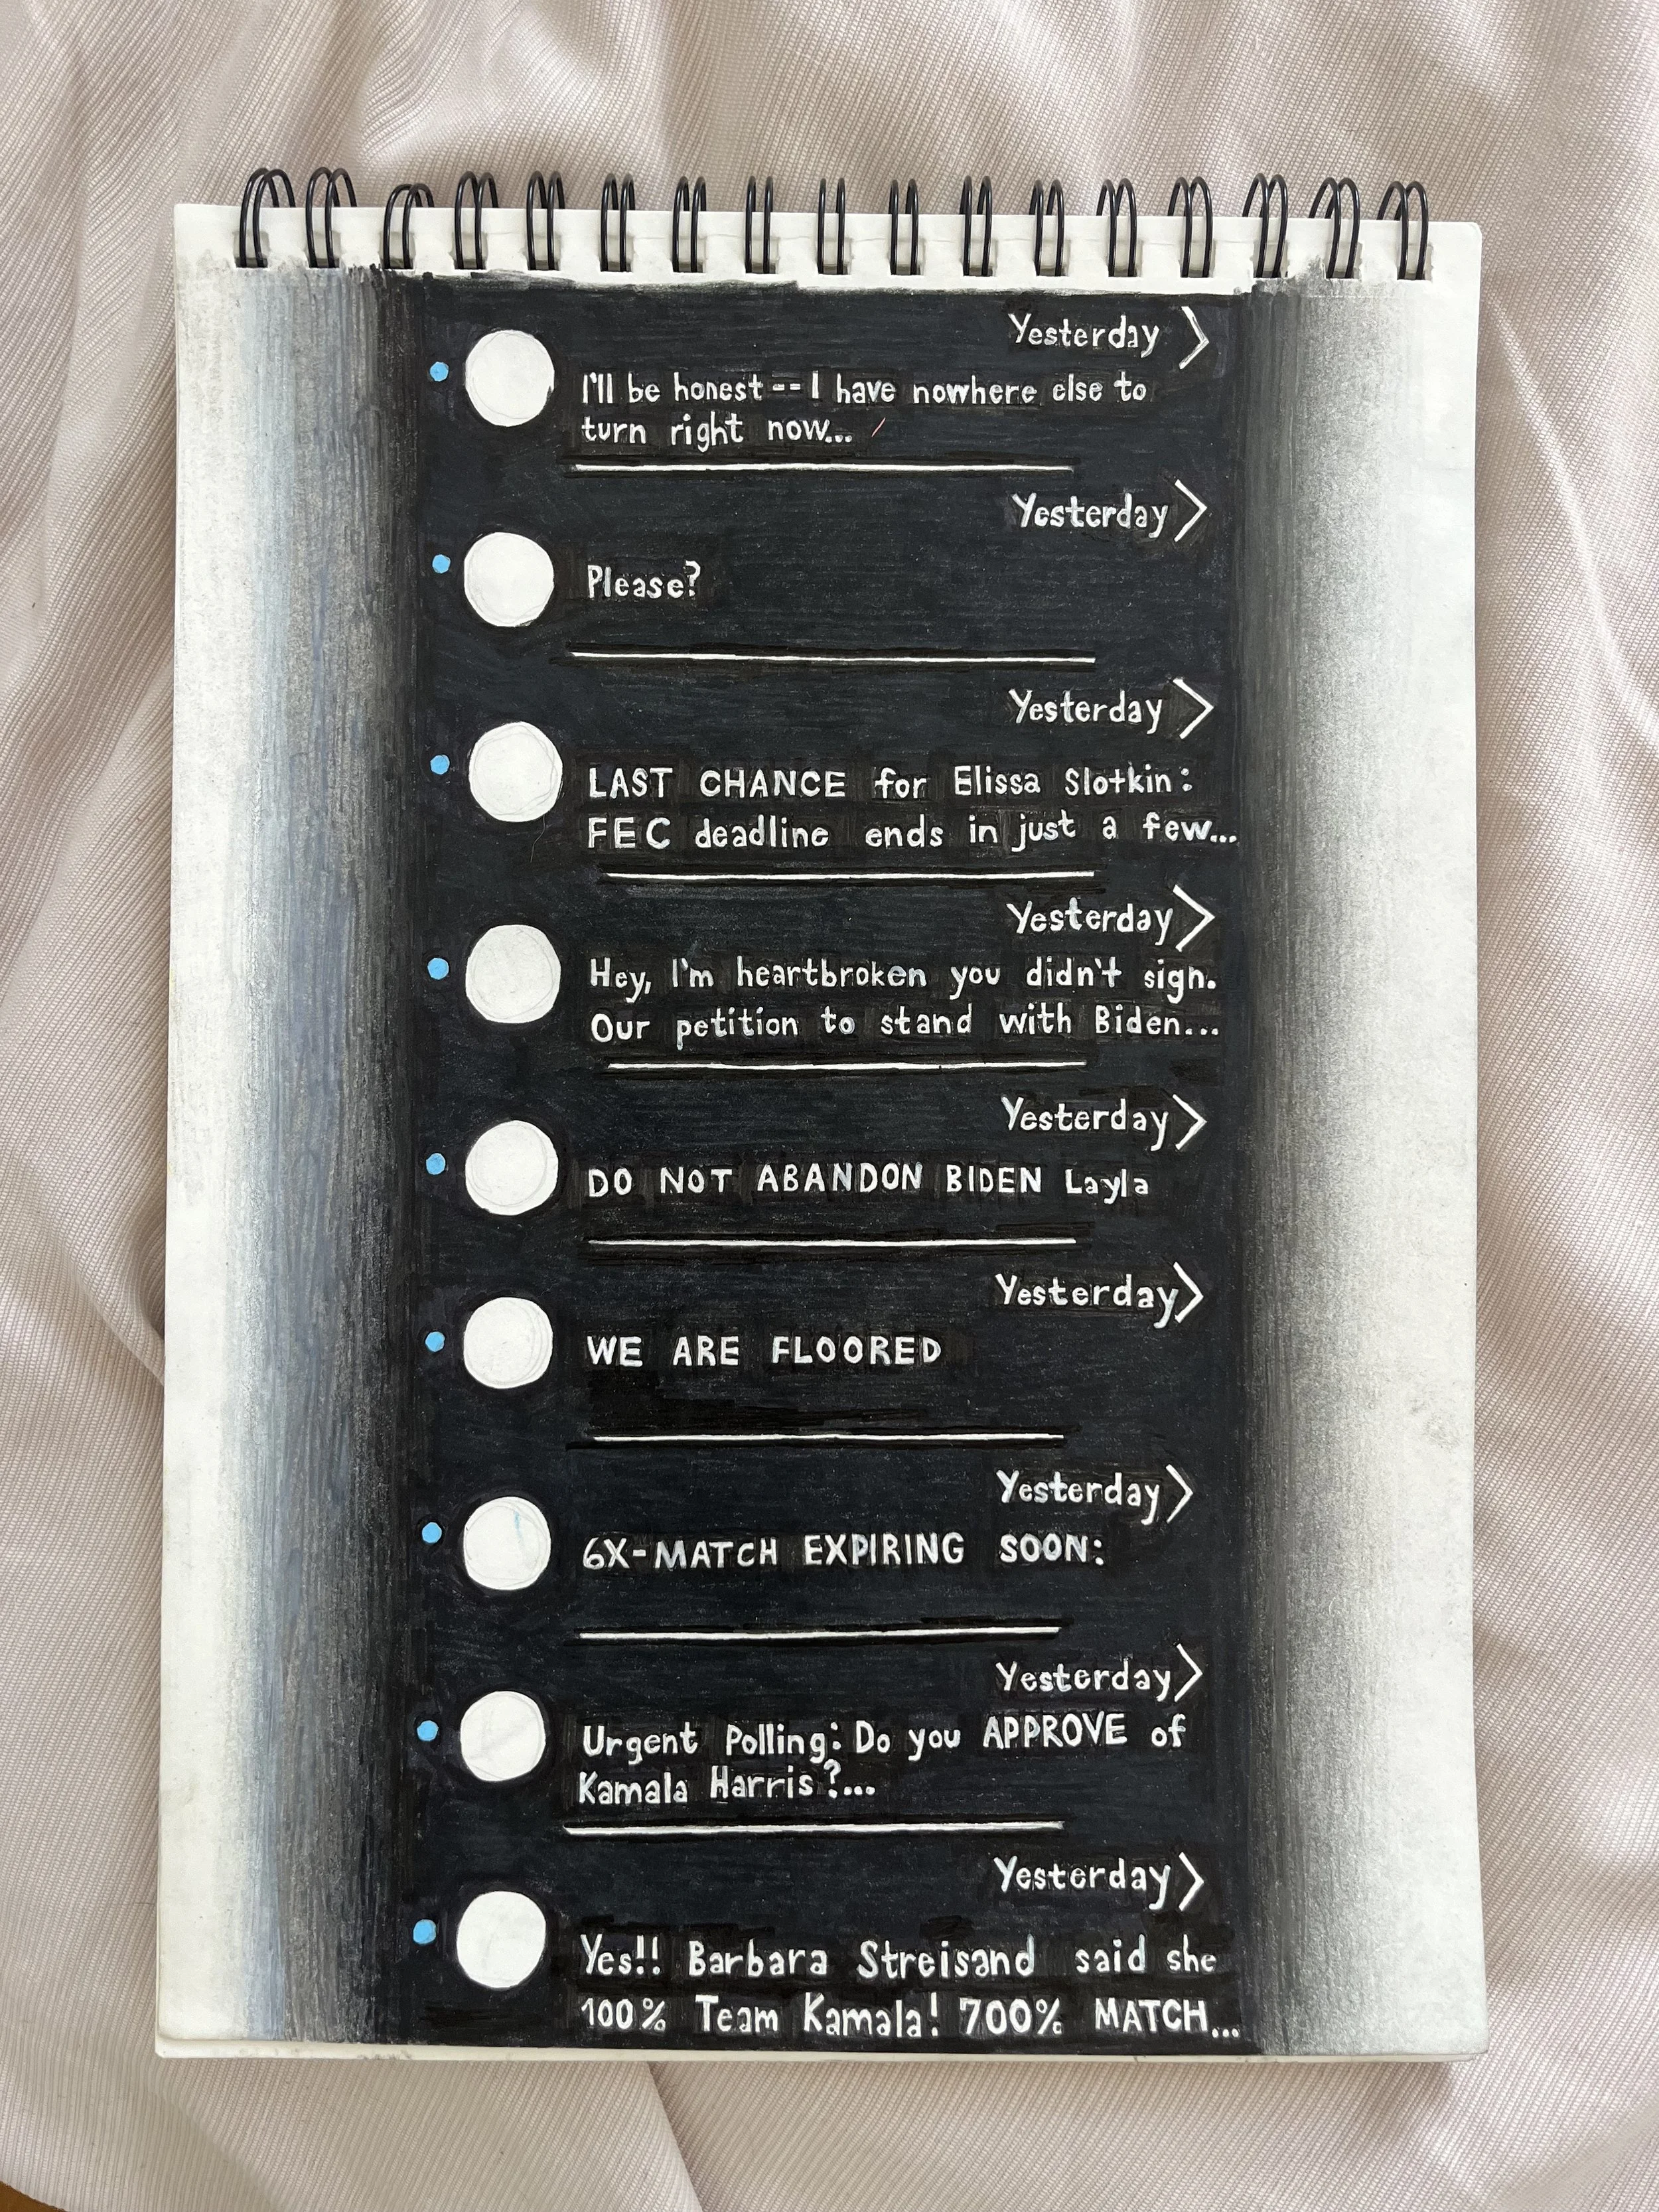 Yesterday >
I'll be honest -- I have nowhere else to
turn right now...
Yesterday >
Please?
Yesterday >
LAST CHANCE for Elissa Slotkin:
FEC deadline ends in just a few...
Yesterday >
Hey, I'm heartbroken you didn't sign.
Our petition to stand with Biden...
Yesterday >
DO NOT ABANDON BIDEN Layla
Yesterday >
WE ARE FLOORED
Yesterday >
6X-MATCH EXPIRING SOON:
Yesterday >
Urgent Polling: Do you APPROVE of
Kamala Harris?...
Yesterday >
Yes!! Barbara Streisand said she
100% Team Kamala! 700% MATCH...